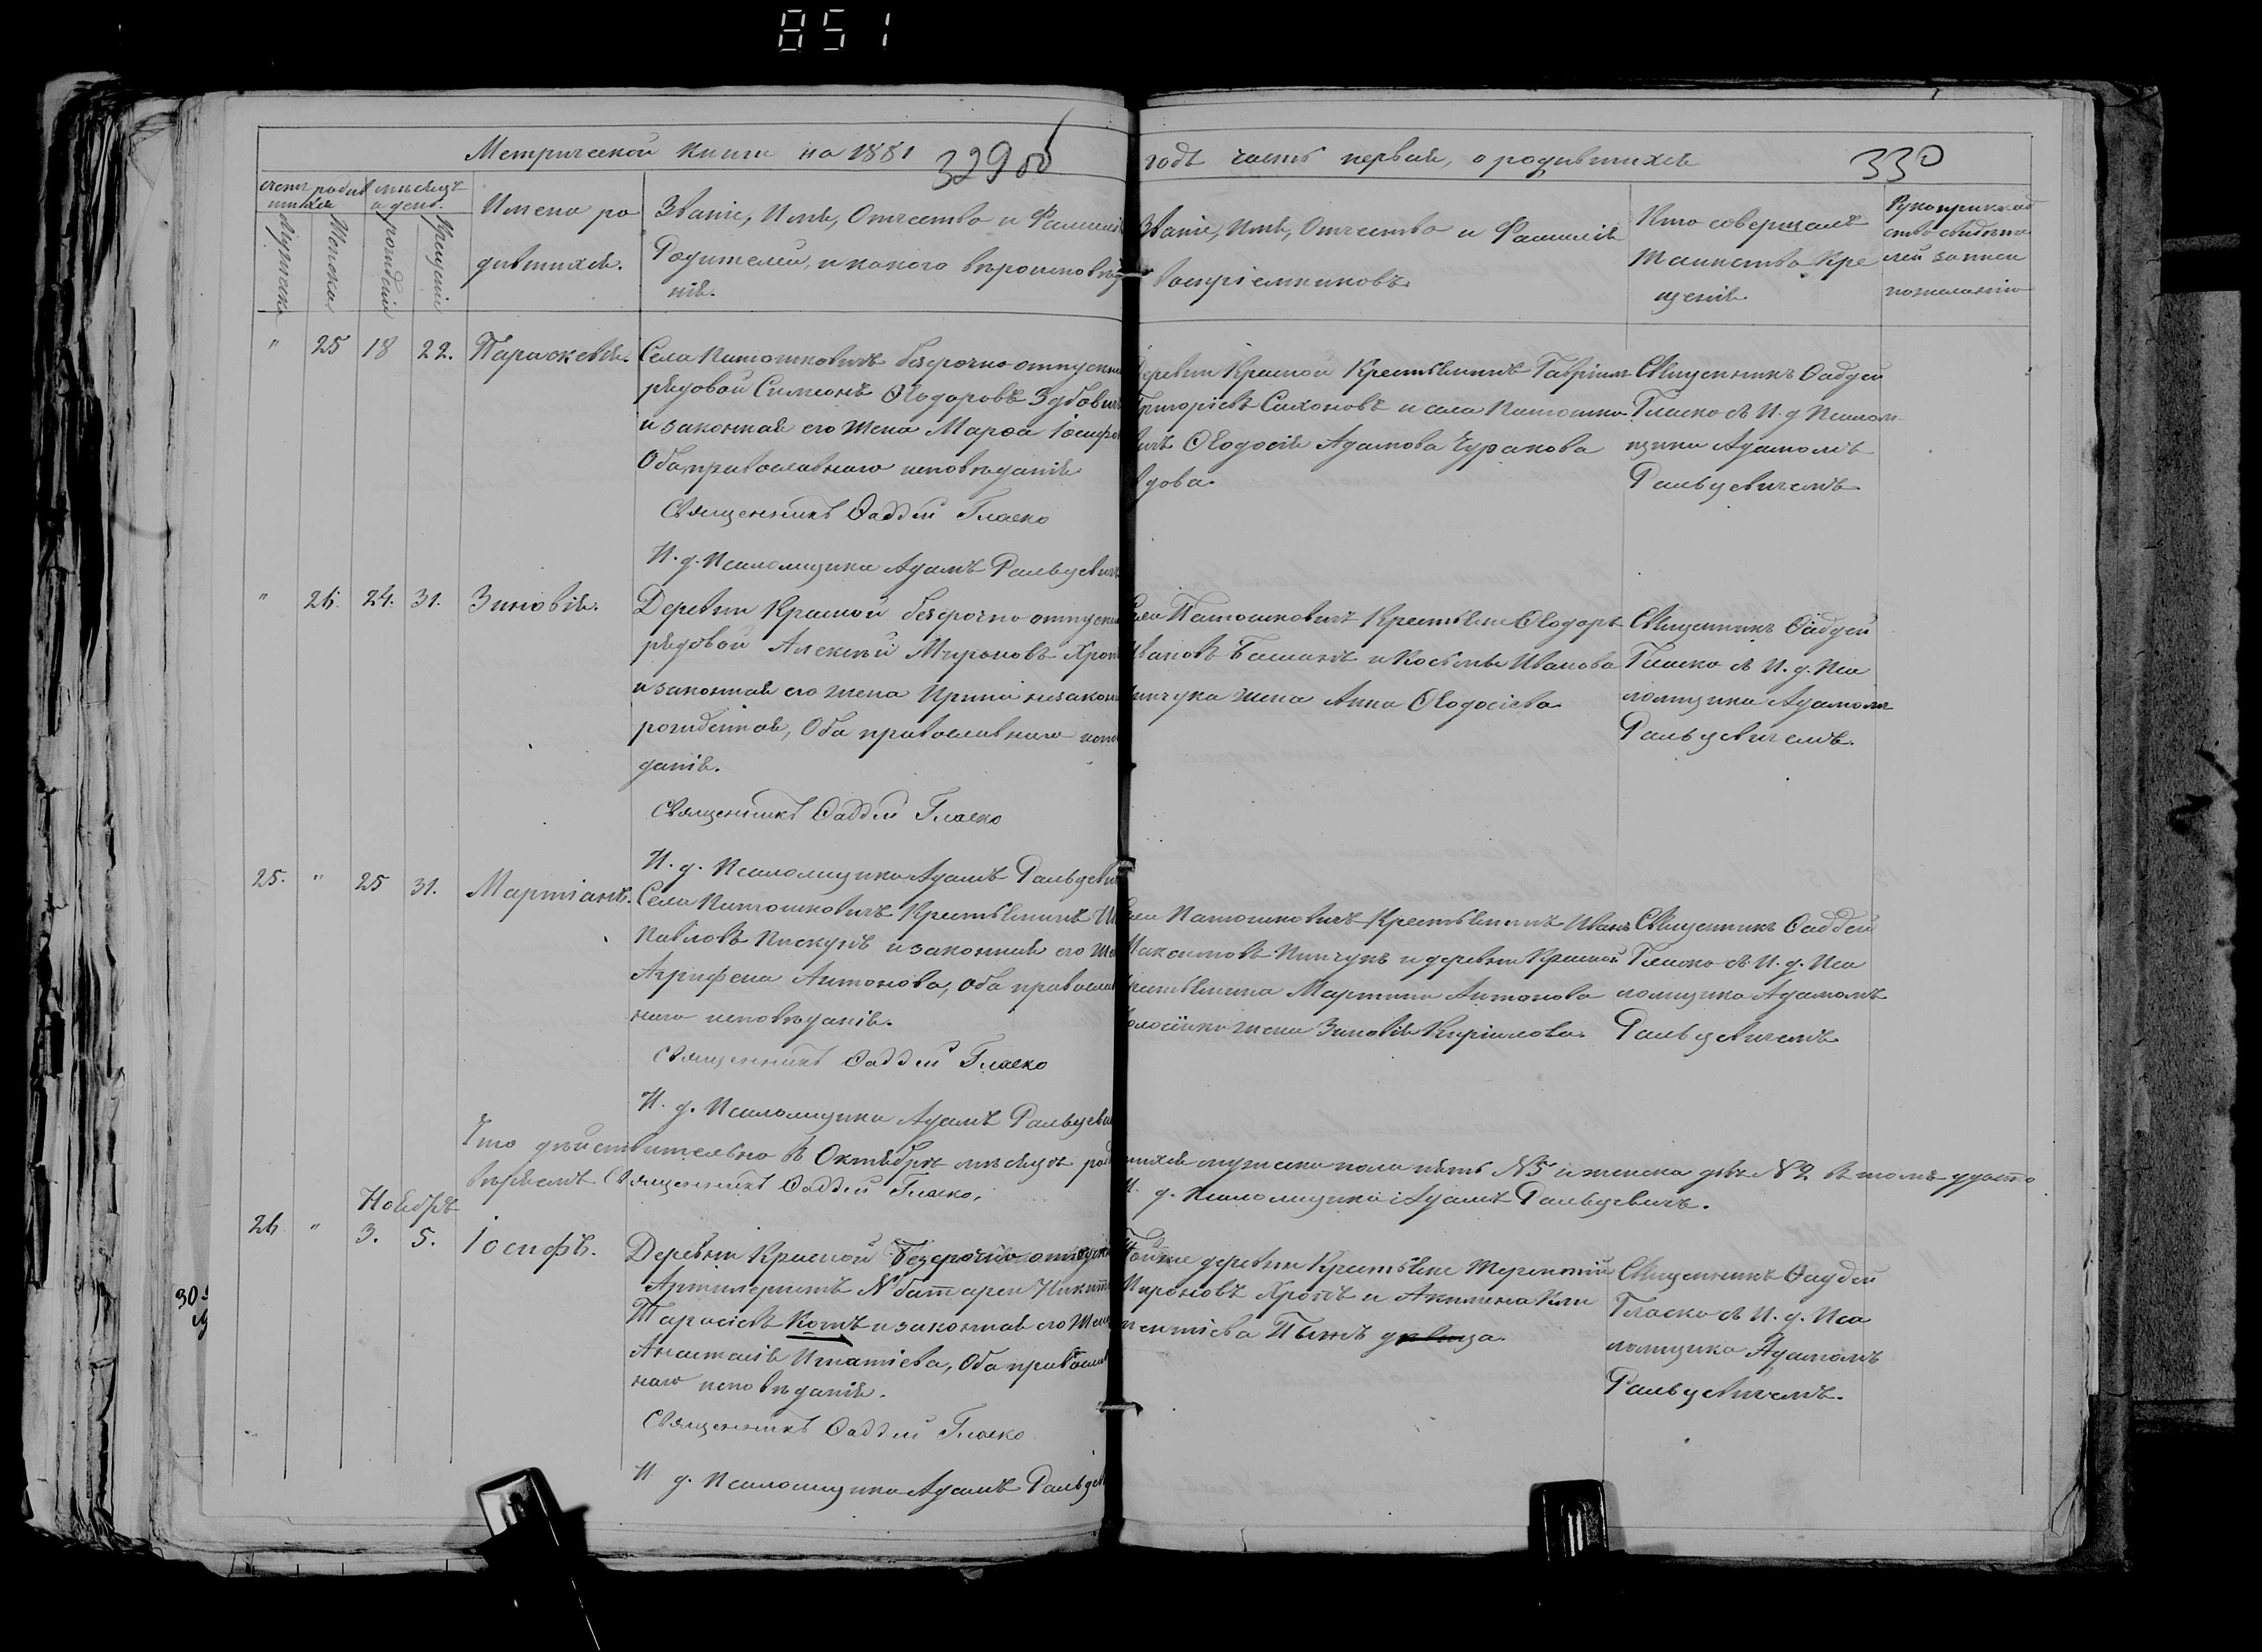 851
Метрической книги на 1881
329 об
годъ часть первая, о родившихся
330
счетъ родив
шихся
мѣсяцъ
и день.
Мужеска
Женска
рожденія
крещенія
Имена ро
дившихся.
Званіе, Имя, Отчество и Фамилія
Родителей, и какого вѣроисповѣд
нія.
Званіе, Имя, Отчество и Фамилія
воспріемниковъ.
Кто совершалъ
таинство Кре
щенія.
Рукоприклад
ство свидѣте
лей записи
пожеланію
" 25 18 22. Параскевія.
Села Патошковичъ безсрочно-отпускн
рядовой Симеонъ Ѳеодоровъ Зубович
и законная его жена Марѳа Іосифо
Оба православнаго исповѣданія
Священникъ Фаддей Гласко
И. д. Псаломщика Адамъ Ральцевичъ
Деревни Красной Крестьянинъ Гавріилъ
Григоріевъ Сахоновъ и села Патошко
вичъ Ѳеодосія Адамова Чуракова
вдова.
Священникъ Фаддей
Гласко съ И. д. Псалом
щика Адамомъ
Ральцевичемъ.
" 26. 24. 31. Зиновія.
Деревни Красной безсрочно отпускн
рядовой Алексѣй Мироновъ Хроп
и законная его жена Ирина незакон
рожденная, Оба православнаго испо
данія.
Священникъ Фаддей Гласко
И. д. Псаломщика Адамъ Ральцевич
Села Патошковичъ Крестьяне Ѳеодоръ
Ивановъ и Косьмы Иванова
жена Анна Ѳеодосіева.
Священникъ Фаддей
Гласко съ И. д. Пса
ломщика Адамомъ
Ральцевичемъ.
25. " 25 31. Мартіанъ.
Села Патошковичъ Крестьянинъ
Павловъ Пискунъ и законная его же
Агрифена Антонова, оба православ
наго исповѣданія.
Священникъ Фаддей Гласко
И. д. Псаломщика Адамъ Ральцеви
Села Патошковичъ Крестьянинъ Иванъ
Максимовъ Пинчукъ и деревни Красной
Крестьянина Мартина Антонова
жена Зиновія Кирилова.
Священникъ Фаддей
Гласко съ И. д. Пса
ломщика Адамомъ
Ральцевичемъ
Что дѣйствительно въ Октябрѣ мѣсяцѣ родившихся мужеска пола пять №5 и женска двѣ №2 въ томъ удосто
вѣряемъ Священникъ Фаддей Гласко,
И. д. Псаломщика Адамъ Ральцевичъ.
Ноябрь
26 " 3. 5. Іосифъ.
Деревни Красной Безсрочно отпускн
Артилеристъ № батареи Никита
Тарасіевъ Котъ и законная его жена
Анастасія Игнатіева, Оба православ
наго исповѣданія.
Священникъ Фаддей Гласко
И. д. Псаломщика Адамъ Ральцев
Той же деревни Крестьяне Терентій
Мироновъ Хропъ и Акилина Кли
ментіева дѣвица.
Священникъ Фаддей
Гласко съ И. д. Пса
ломщика Адамомъ
Ральцевичемъ.